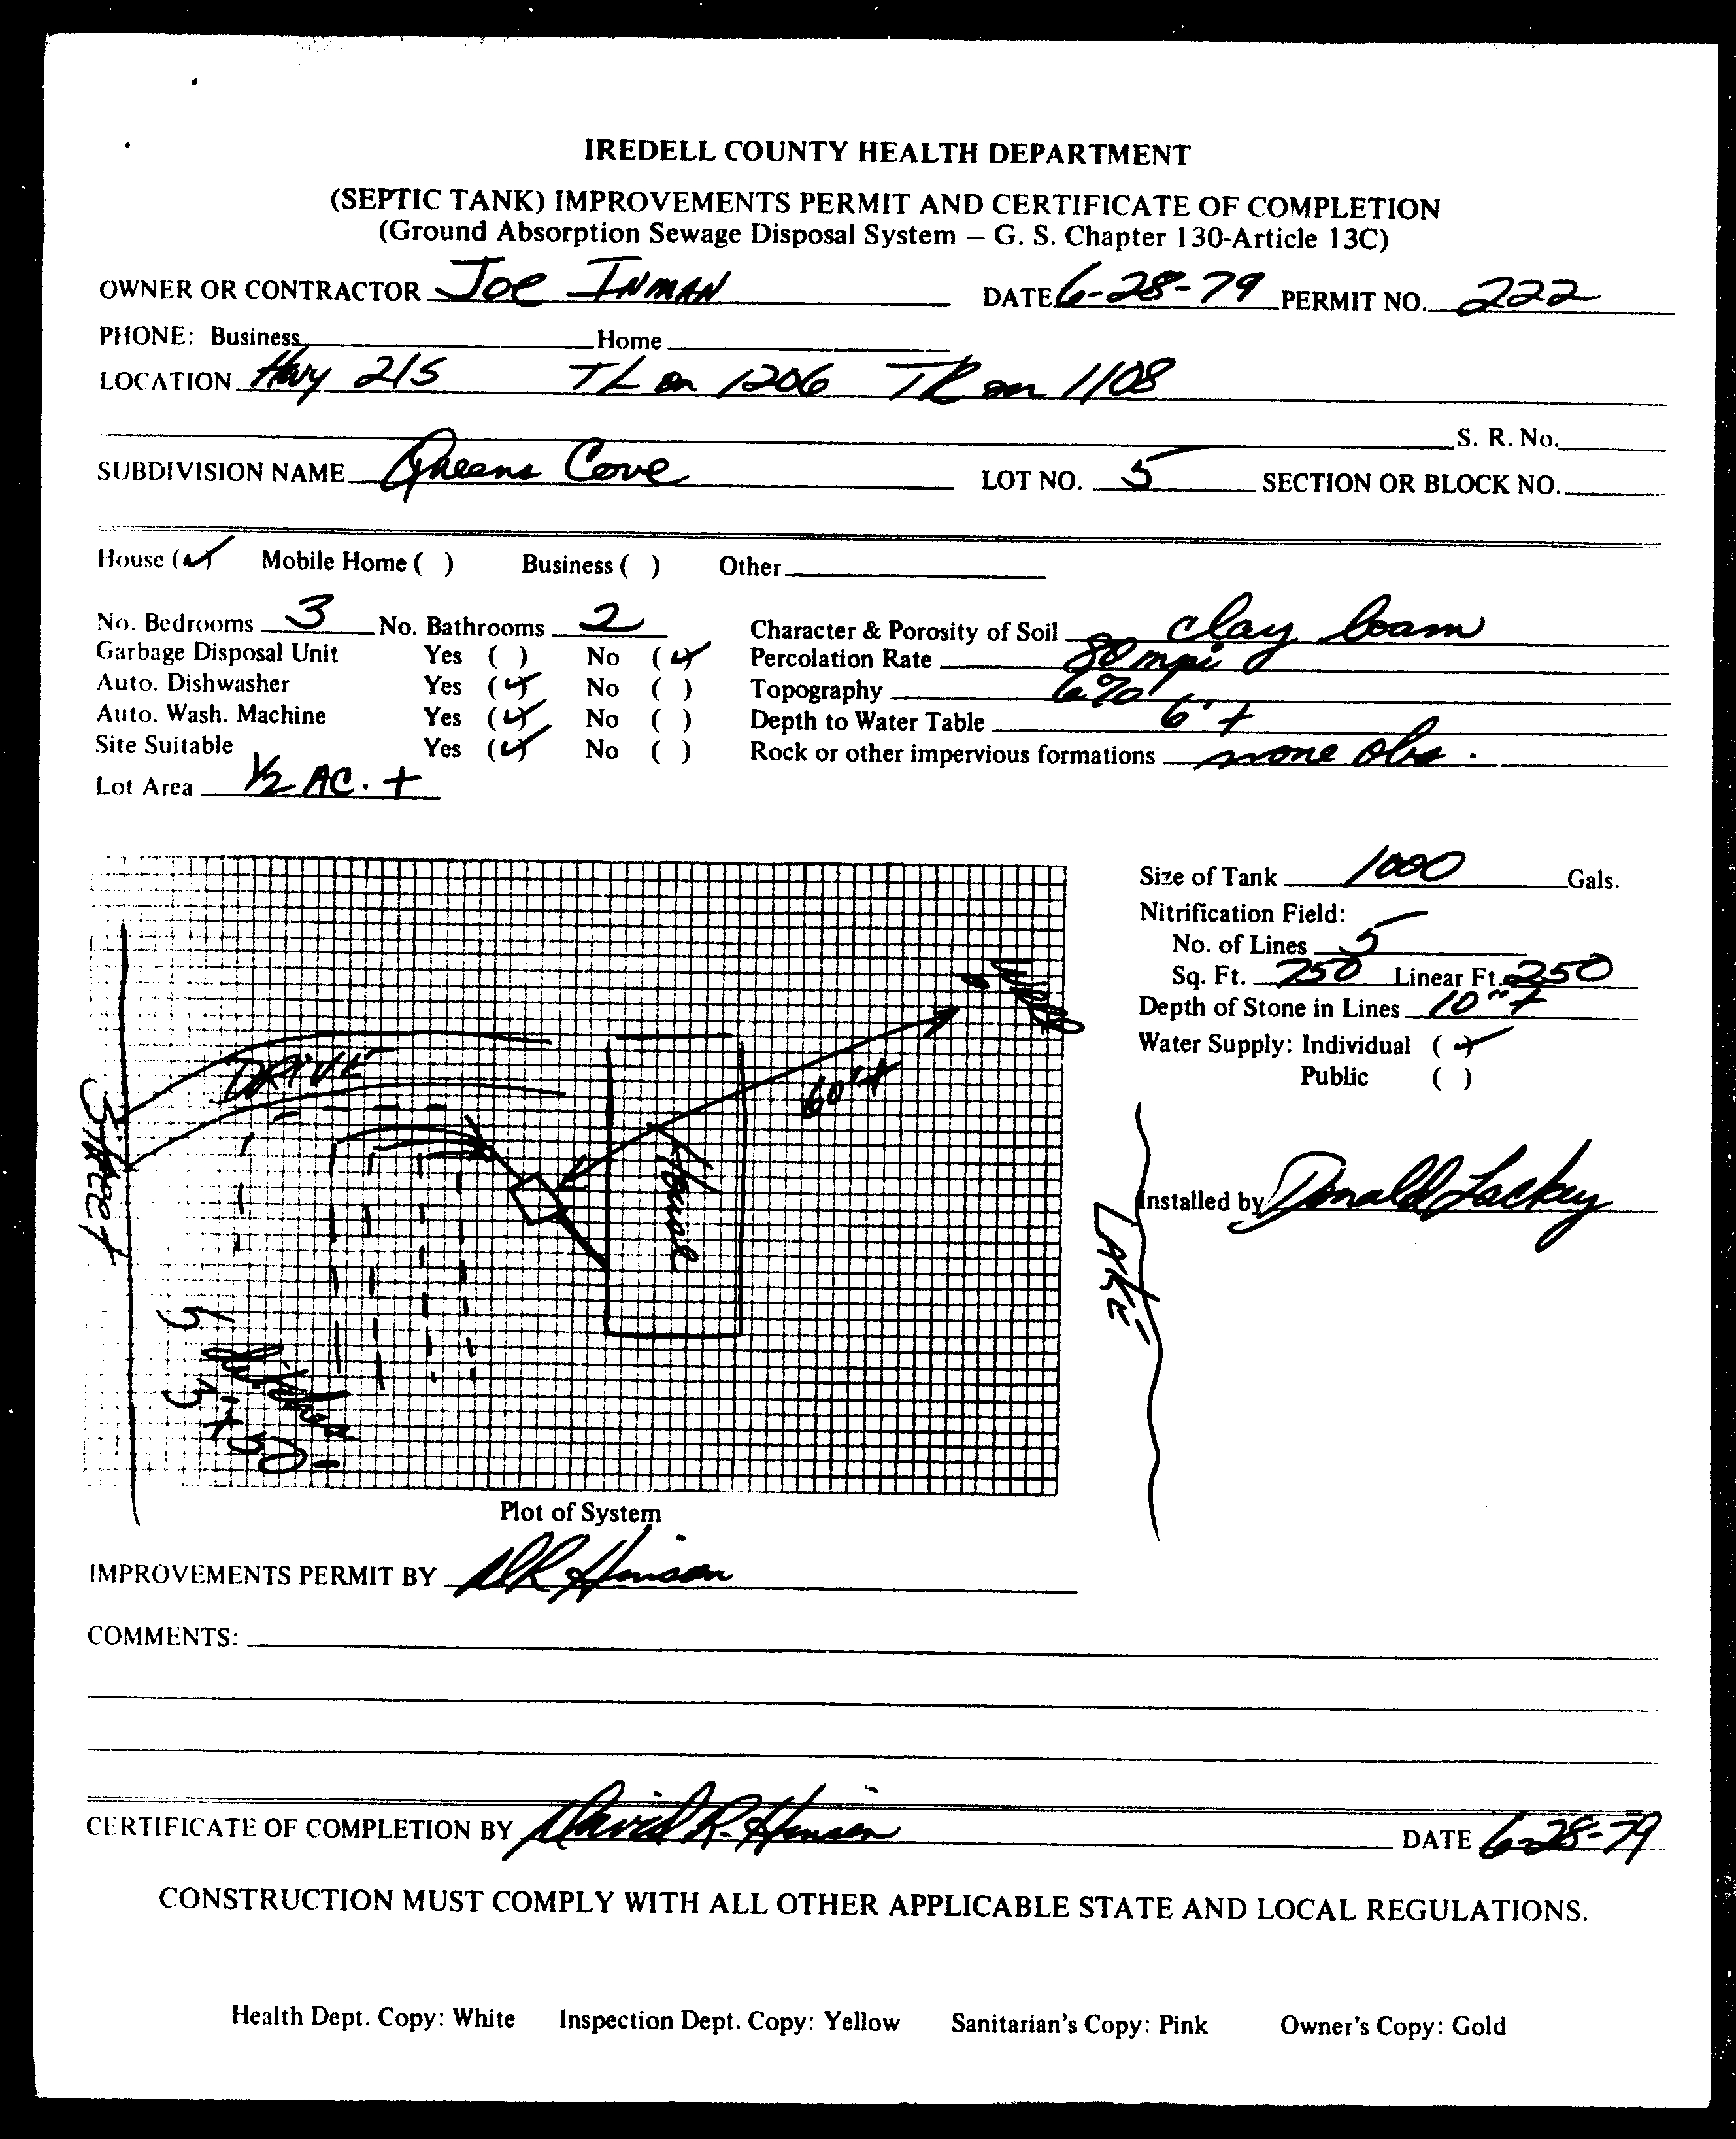 IREDELL COUNTY HEALTH DEPARTMENT
(SEPTIC TANK) IMPROVEMENTS PERMIT AND CERTIFICATE OF COMPLETION
(Ground Absorption Sewage Disposal System – G. S. Chapter 130-Article 13C)
OWNER OR CONTRACTOR Joe Inman DATE 6-28-79 PERMIT NO. 222
PHONE: Business Home
LOCATION Hwy 215 TL on 1206 TR on 1108
S. R. No.
SUBDIVISION NAME Queens Cove LOT NO. 5 SECTION OR BLOCK NO.
House (✓) Mobile Home ( ) Business ( ) Other
No. Bedrooms 3 No. Bathrooms 2 Character & Porosity of Soil clay loam
Garbage Disposal Unit Yes ( ) No (✓) Percolation Rate 80 mpi
Auto. Dishwasher Yes (✓) No ( ) Topography 6%
Auto. Wash. Machine Yes (✓) No ( ) Depth to Water Table 6' +
Site Suitable Yes (✓) No ( ) Rock or other impervious formations none obs.
Lot Area 1/2 AC. +
Size of Tank 1000 Gals.
Nitrification Field:
No. of Lines 5
Sq. Ft. 750 Linear Ft. 250
Depth of Stone in Lines 10" +
Water Supply: Individual (✓)
Public ( )
Well
DRIVE
60' +
Street
House
LAKE
Installed by Donald Lackey
5 ditches
3' x 50'
Plot of System
IMPROVEMENTS PERMIT BY DR Hinson
COMMENTS:
CERTIFICATE OF COMPLETION BY David R. Hinson DATE 6-28-79
CONSTRUCTION MUST COMPLY WITH ALL OTHER APPLICABLE STATE AND LOCAL REGULATIONS.
Health Dept. Copy: White Inspection Dept. Copy: Yellow Sanitarian's Copy: Pink Owner's Copy: Gold